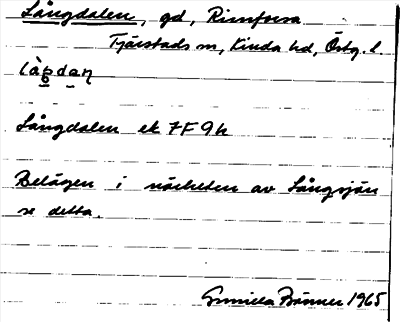 Långdalen, gd, Rimforsa
Tjärstads sn, Kinda hd, Östg. l.
Långdalen ek 7F 9h
Belägen i närheten av Långsjön
se detta.
Gunilla Bönner 1965